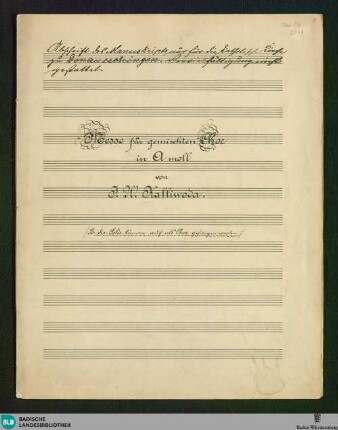 Abschrift des Manuskripts nur für die katholische Kirche
zu Donaueschingen. Vervielfältigung nicht
gestattet.
Messe für gemischten Chor
in A moll
von
J. W. Kalliwoda.
(Die Solis können auch als Chor gesungen werden.)
BLB BADISCHE
LANDESBIBLIOTHEK
Baden-Württemberg